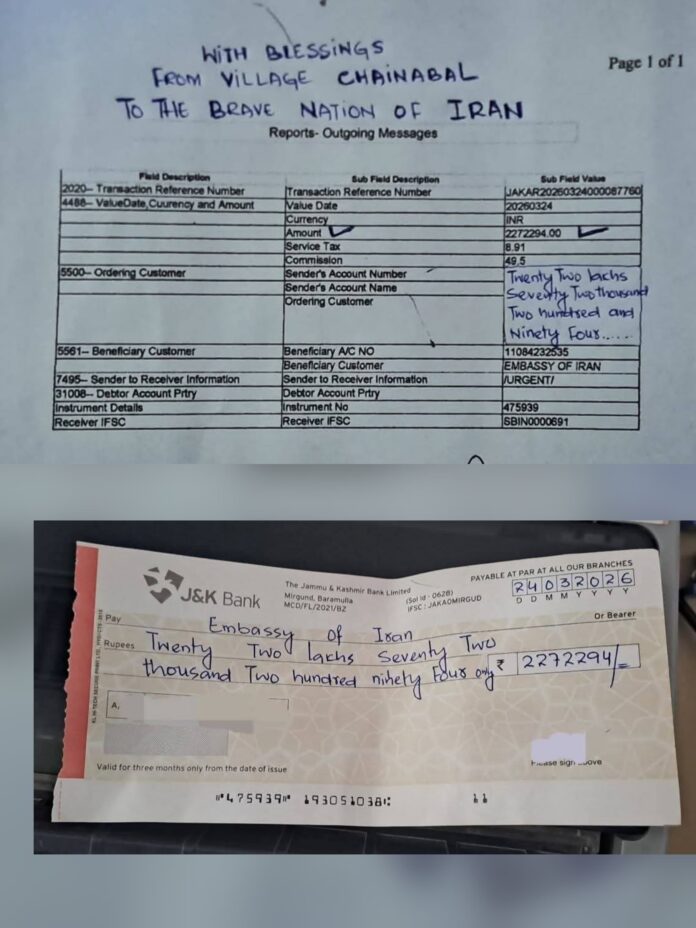 WITH BLESSINGS
FROM VILLAGE CHAINABAL
TO THE BRAVE NATION OF IRAN
Page 1 of 1
Reports- Outgoing Messages
Field Description Sub Field Description Sub Field Value
2020-- Transaction Reference Number Transaction Reference Number JAKAR20260324000087760
4488-- ValueDate,Cuurency and Amount Value Date 20260324
Currency INR
Amount 2272294.00
Service Tax 8.91
Commission 49.5
5500-- Ordering Customer Sender's Account Number Twenty Two lachs
Sender's Account Name Seventy Two thousand
Ordering Customer Two hundred and
Ninety Four.....
5561-- Beneficiary Customer Beneficiary A/C NO 11084232535
Beneficiary Customer EMBASSY OF IRAN
7495-- Sender to Receiver Information Sender to Receiver Information /URGENT/
31008-- Debtor Account Prtry Debtor Account Prtry
Instrument Details Instrument No 475939
Receiver IFSC Receiver IFSC SBIN0000691
J&K Bank
The Jammu & Kashmir Bank Limited
Mirgund, Baramulla
MCD/FL/2021/BZ
(Sol Id - 0628)
IFSC : JAKA0MIRGUD
PAYABLE AT PAR AT ALL OUR BRANCHES
24032026
D D M M Y Y Y Y
Pay Embassy of Iran Or Bearer
Rupees Twenty Two lachs Seventy Two
thousand Two hundred ninety Four only ₹ 2272294/=
A.
Valid for three months only from the date of issue
Please sign above
⑈475939⑈ 193051038⑆ 11